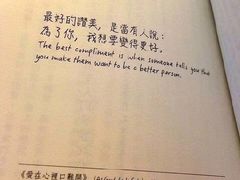 最好的讚美，是當有人說：
為了你，我想要變得更好。
The best compliment is when someone tells you that
you make them want to be a better person.
《愛在心裡口難開》